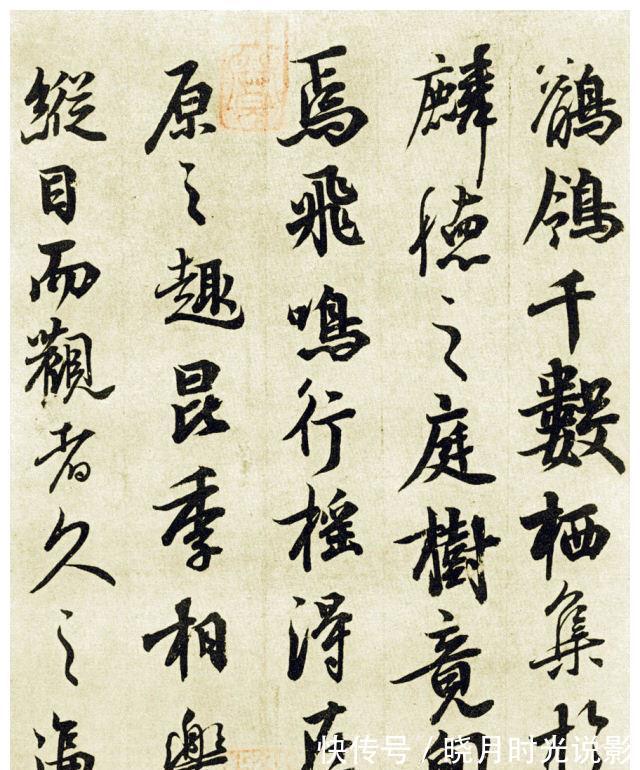 鶺鴒千數栖集於
麟德之庭樹竟
焉飛鳴行搖得在
原之趣昆季相樂
縱目而觀者久之逼
快传号 / 晓月时光说影